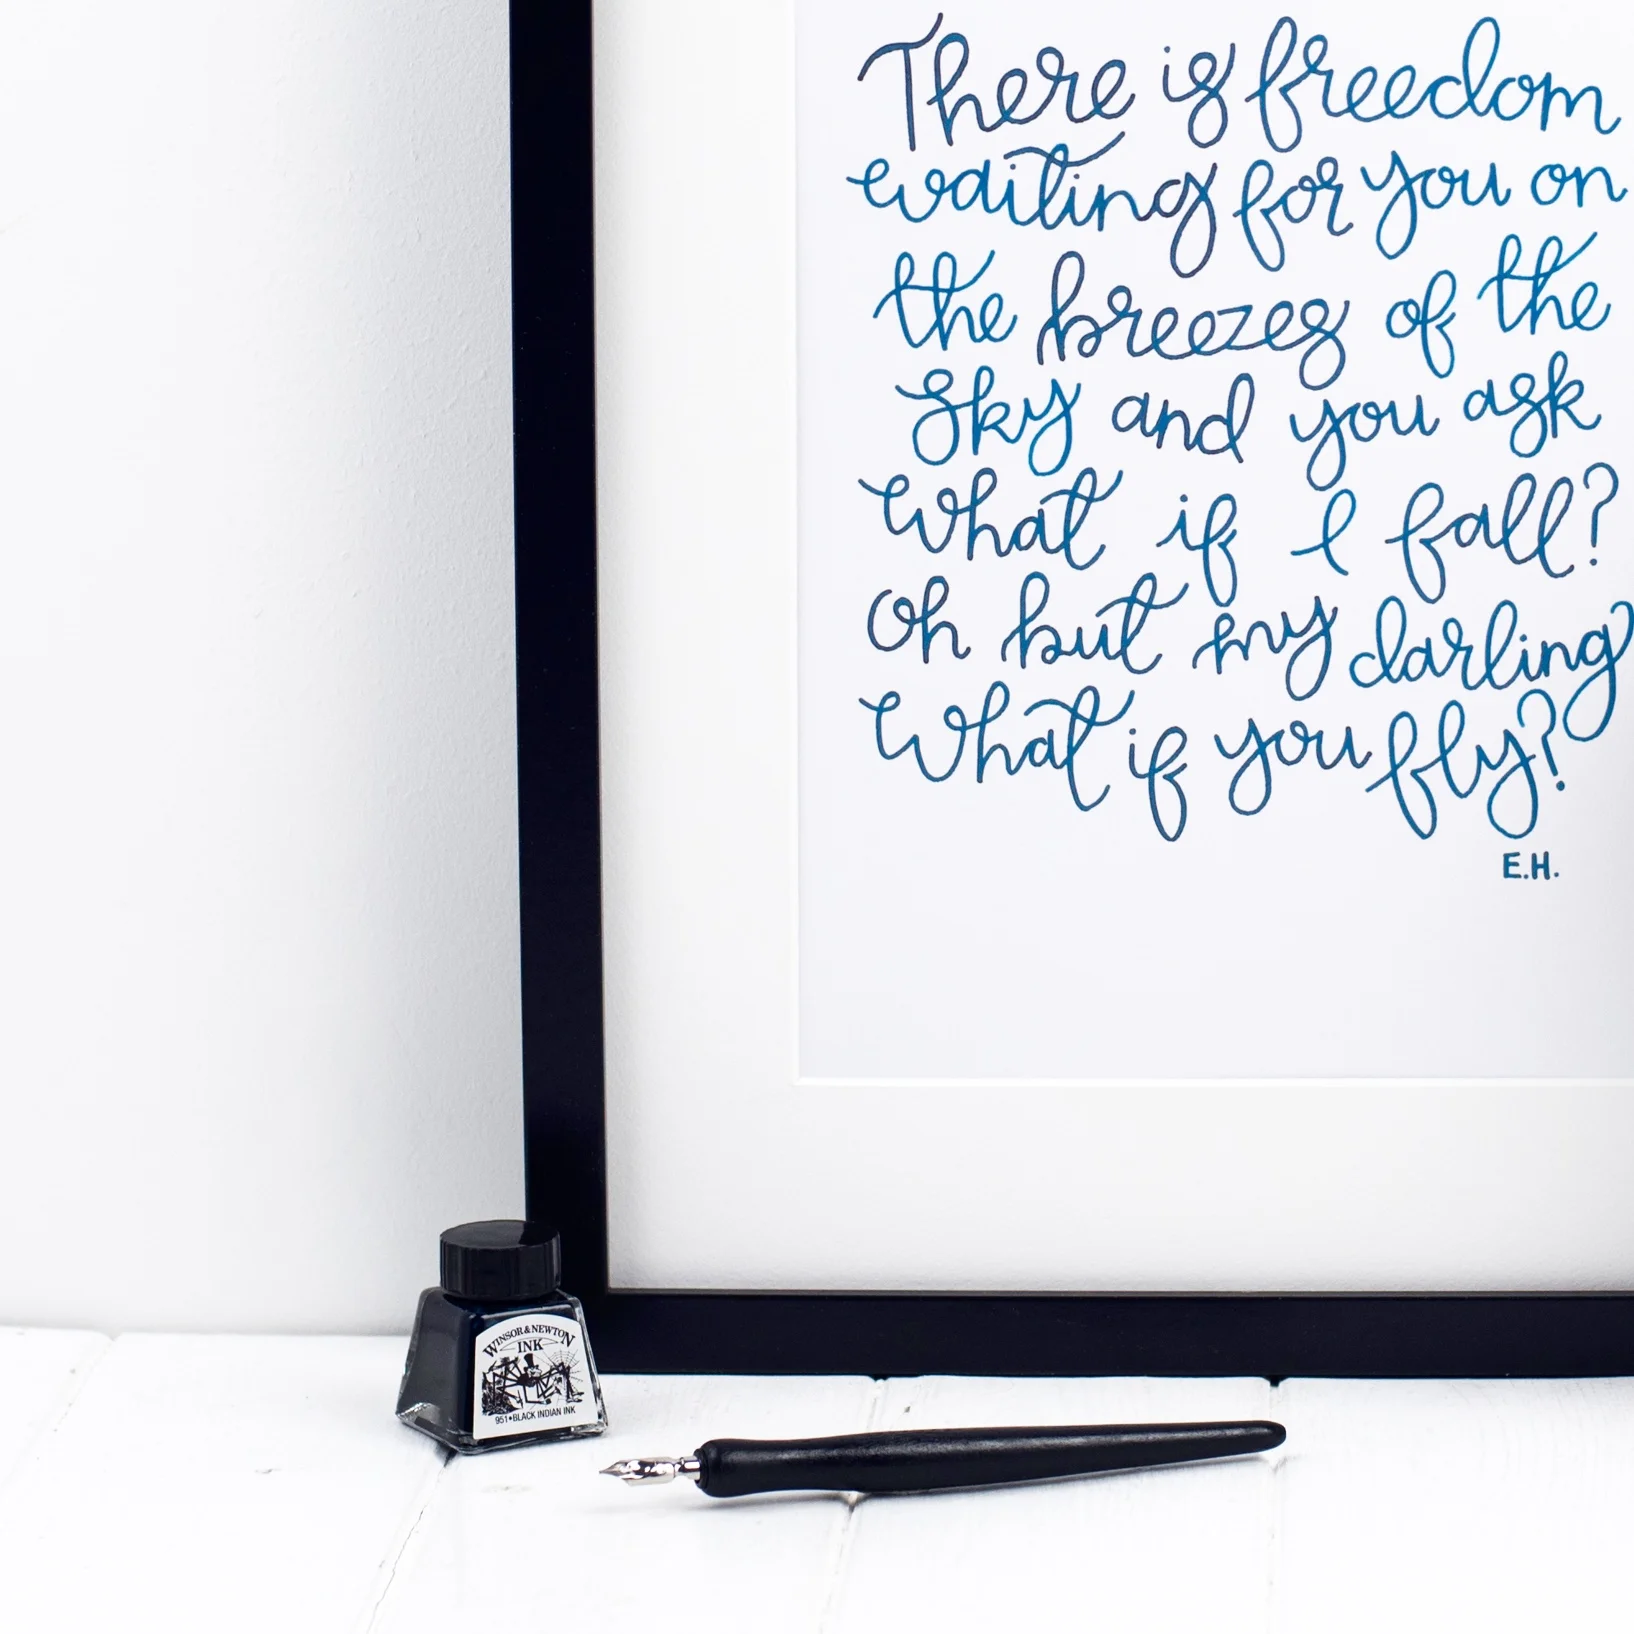 There is freedom
waiting for you on
the breezes of the
sky and you ask
What if I fall?
Oh but my darling
What if you fly?
E.H.
WINSOR & NEWTON
INK
951•BLACK INDIAN INK